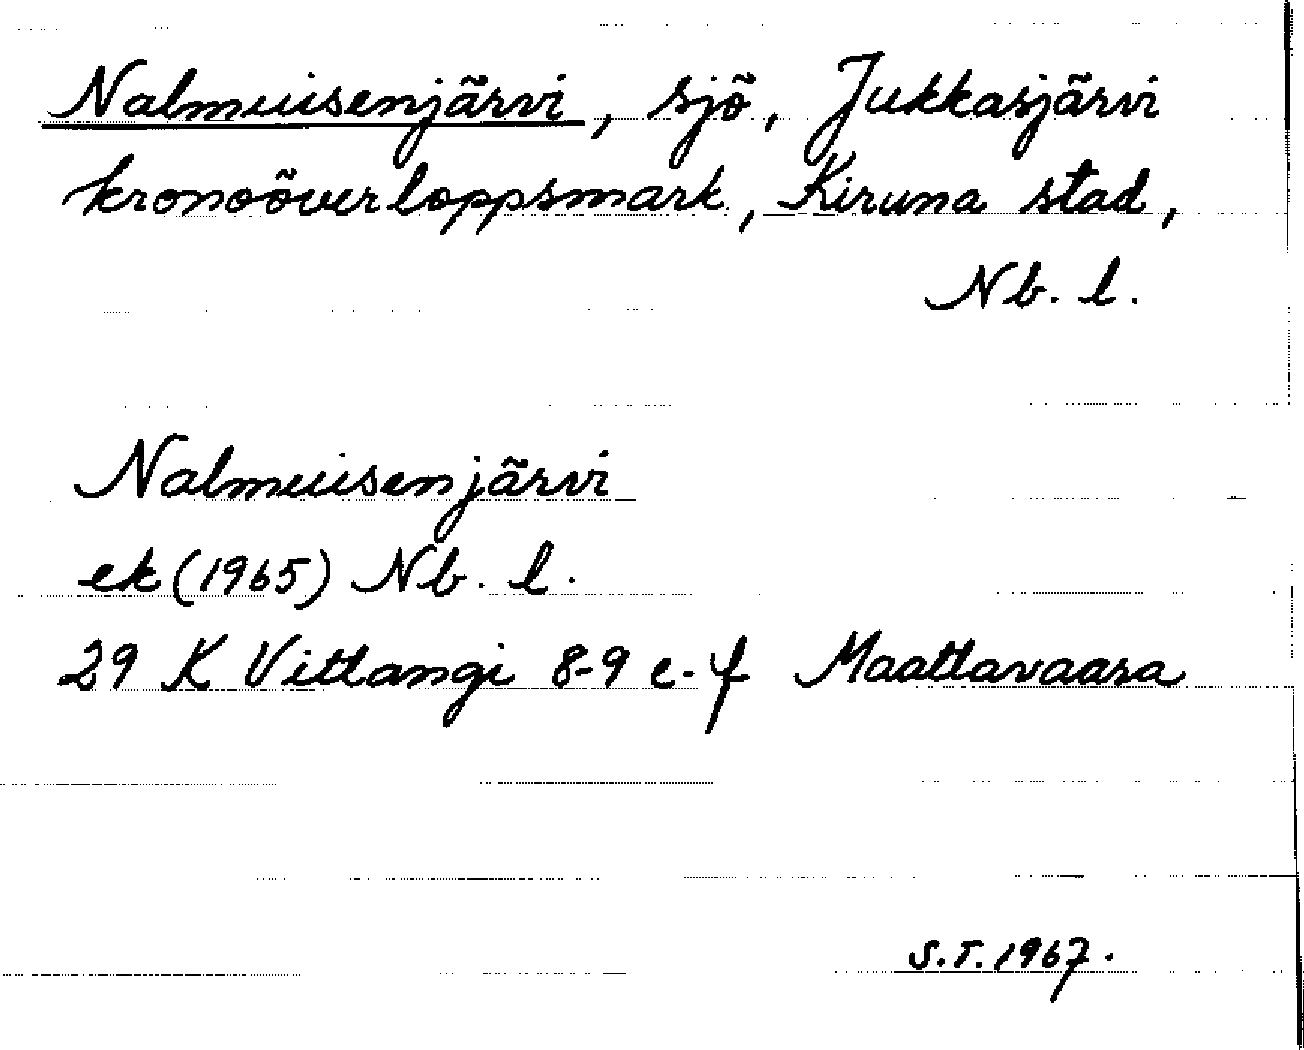 Nalmuisenjärvi, sjö, Jukkasjärvi
kronoöverloppsmark, Kiruna stad,
Nb. l.
Nalmuisenjärvi
ek (1965) Nb. l.
29 K Vittangi 8-9 e-f Maattavaara
S.T. 1967.